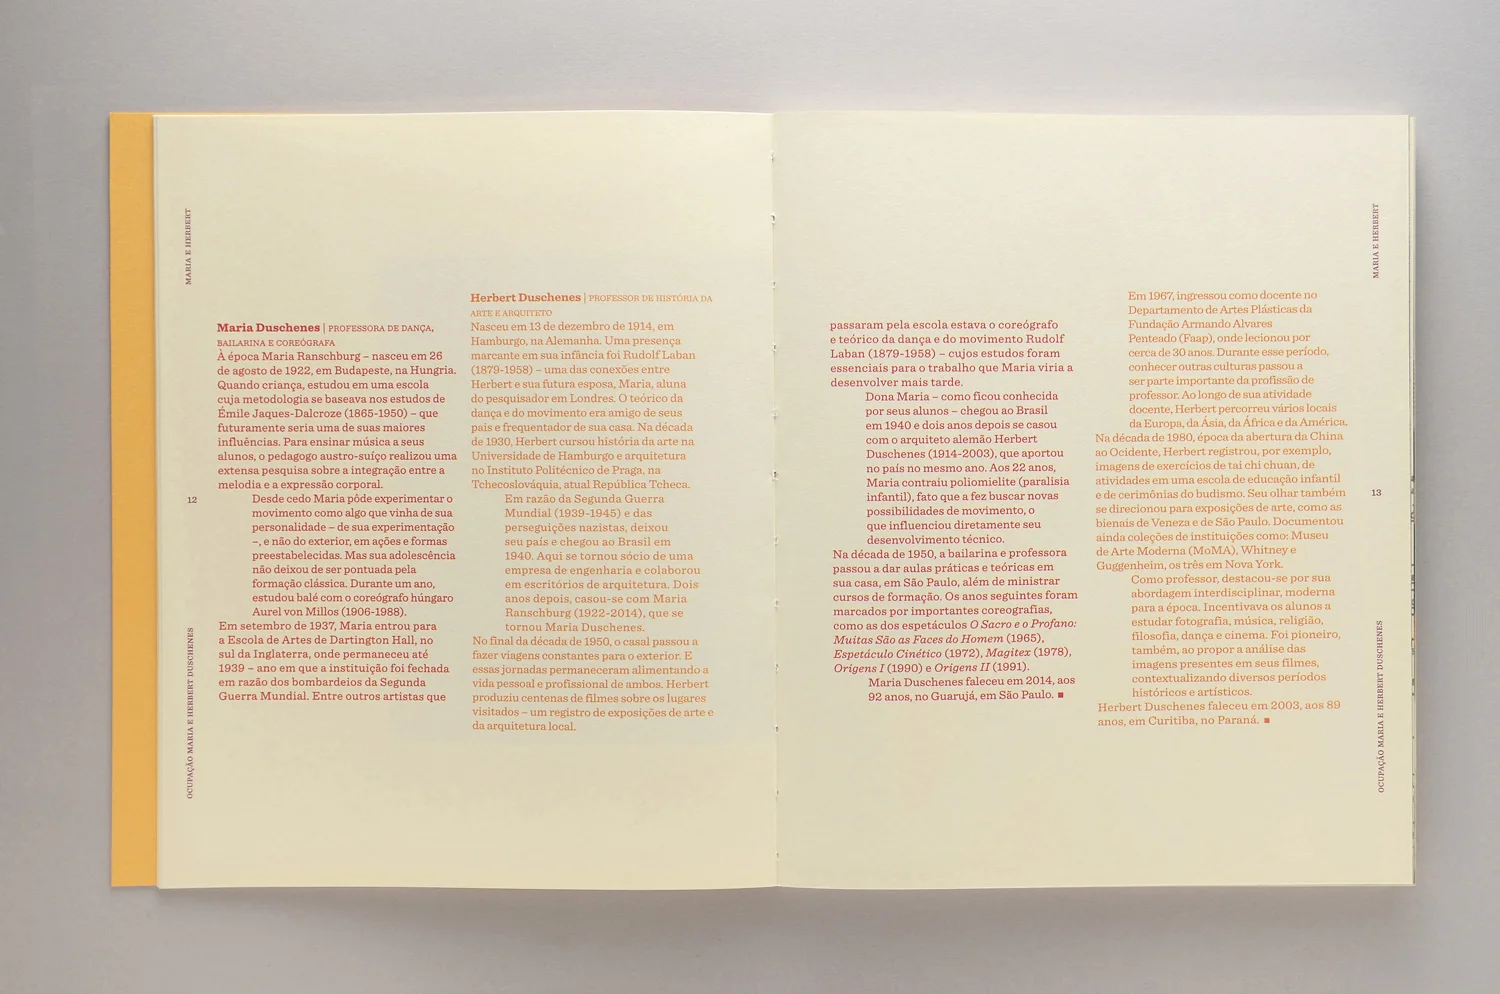 MARIA E HERBERT
Maria Duschenes | PROFESSORA DE DANÇA,
BAILARINA E COREÓGRAFA
À época Maria Ranschburg – nasceu em 26
de agosto de 1922, em Budapeste, na Hungria.
Quando criança, estudou em uma escola
cuja metodologia se baseava nos estudos de
Émile Jaques-Dalcroze (1865-1950) – que
futuramente seria uma de suas maiores
influências. Para ensinar música a seus
alunos, o pedagogo austro-suíço realizou uma
extensa pesquisa sobre a integração entre a
melodia e a expressão corporal.
Desde cedo Maria pôde experimentar o
movimento como algo que vinha de sua
personalidade – de sua experimentação
–, e não do exterior, em ações e formas
preestabelecidas. Mas sua adolescência
não deixou de ser pontuada pela
formação clássica. Durante um ano,
estudou balé com o coreógrafo húngaro
Aurel von Millos (1906-1988).
Em setembro de 1937, Maria entrou para
a Escola de Artes de Dartington Hall, no
sul da Inglaterra, onde permaneceu até
1939 – ano em que a instituição foi fechada
em razão dos bombardeios da Segunda
Guerra Mundial. Entre outros artistas que
12
OCUPAÇÃO MARIA E HERBERT DUSCHENES
Herbert Duschenes | PROFESSOR DE HISTÓRIA DA
ARTE E ARQUITETO
Nasceu em 13 de dezembro de 1914, em
Hamburgo, na Alemanha. Uma presença
marcante em sua infância foi Rudolf Laban
(1879-1958) – uma das conexões entre
Herbert e sua futura esposa, Maria, aluna
do pesquisador em Londres. O teórico da
dança e do movimento era amigo de seus
pais e frequentador de sua casa. Na década
de 1930, Herbert cursou história da arte na
Universidade de Hamburgo e arquitetura
no Instituto Politécnico de Praga, na
Tchecoslováquia, atual República Tcheca.
Em razão da Segunda Guerra
Mundial (1939-1945) e das
perseguições nazistas, deixou
seu país e chegou ao Brasil em
1940. Aqui se tornou sócio de uma
empresa de engenharia e colaborou
em escritórios de arquitetura. Dois
anos depois, casou-se com Maria
Ranschburg (1922-2014), que se
tornou Maria Duschenes.
No final da década de 1950, o casal passou a
fazer viagens constantes para o exterior. E
essas jornadas permaneceram alimentando a
vida pessoal e profissional de ambos. Herbert
produziu centenas de filmes sobre os lugares
visitados – um registro de exposições de arte e
da arquitetura local.
passaram pela escola estava o coreógrafo
e teórico da dança e do movimento Rudolf
Laban (1879-1958) – cujos estudos foram
essenciais para o trabalho que Maria viria a
desenvolver mais tarde.
Dona Maria – como ficou conhecida
por seus alunos – chegou ao Brasil
em 1940 e dois anos depois se casou
com o arquiteto alemão Herbert
Duschenes (1914-2003), que aportou
no país no mesmo ano. Aos 22 anos,
Maria contraiu poliomielite (paralisia
infantil), fato que a fez buscar novas
possibilidades de movimento, o
que influenciou diretamente seu
desenvolvimento técnico.
Na década de 1950, a bailarina e professora
passou a dar aulas práticas e teóricas em
sua casa, em São Paulo, além de ministrar
cursos de formação. Os anos seguintes foram
marcados por importantes coreografias,
como as dos espetáculos O Sacro e o Profano:
Muitas São as Faces do Homem (1965),
Espetáculo Cinético (1972), Magitex (1978),
Origens I (1990) e Origens II (1991).
Maria Duschenes faleceu em 2014, aos
92 anos, no Guarujá, em São Paulo. ■
Em 1967, ingressou como docente no
Departamento de Artes Plásticas da
Fundação Armando Alvares
Penteado (Faap), onde lecionou por
cerca de 30 anos. Durante esse período,
conhecer outras culturas passou a
ser parte importante da profissão de
professor. Ao longo de sua atividade
docente, Herbert percorreu vários locais
da Europa, da Ásia, da África e da América.
Na década de 1980, época da abertura da China
ao Ocidente, Herbert registrou, por exemplo,
imagens de exercícios de tai chi chuan, de
atividades em uma escola de educação infantil
e de cerimônias do budismo. Seu olhar também
se direcionou para exposições de arte, como as
bienais de Veneza e de São Paulo. Documentou
ainda coleções de instituições como: Museu
de Arte Moderna (MoMA), Whitney e
Guggenheim, os três em Nova York.
Como professor, destacou-se por sua
abordagem interdisciplinar, moderna
para a época. Incentivava os alunos a
estudar fotografia, música, religião,
filosofia, dança e cinema. Foi pioneiro,
também, ao propor a análise das
imagens presentes em seus filmes,
contextualizando diversos períodos
históricos e artísticos.
Herbert Duschenes faleceu em 2003, aos 89
anos, em Curitiba, no Paraná. ■
MARIA E HERBERT
13
OCUPAÇÃO MARIA E HERBERT DUSCHENES